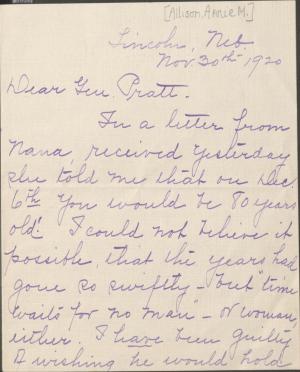 [Allison, Annie M.]
Lincoln, Neb.
Nov 30th 1920
Dear Gen Pratt.
In a letter from
Nana, received yesterday
she told me that on Dec.
6th you would be 80 years
old! I could not believe it
possible that the years had
gone so swiftly - but "time
waits for no man" - or woman
either. I have been guilty
of wishing he would hold